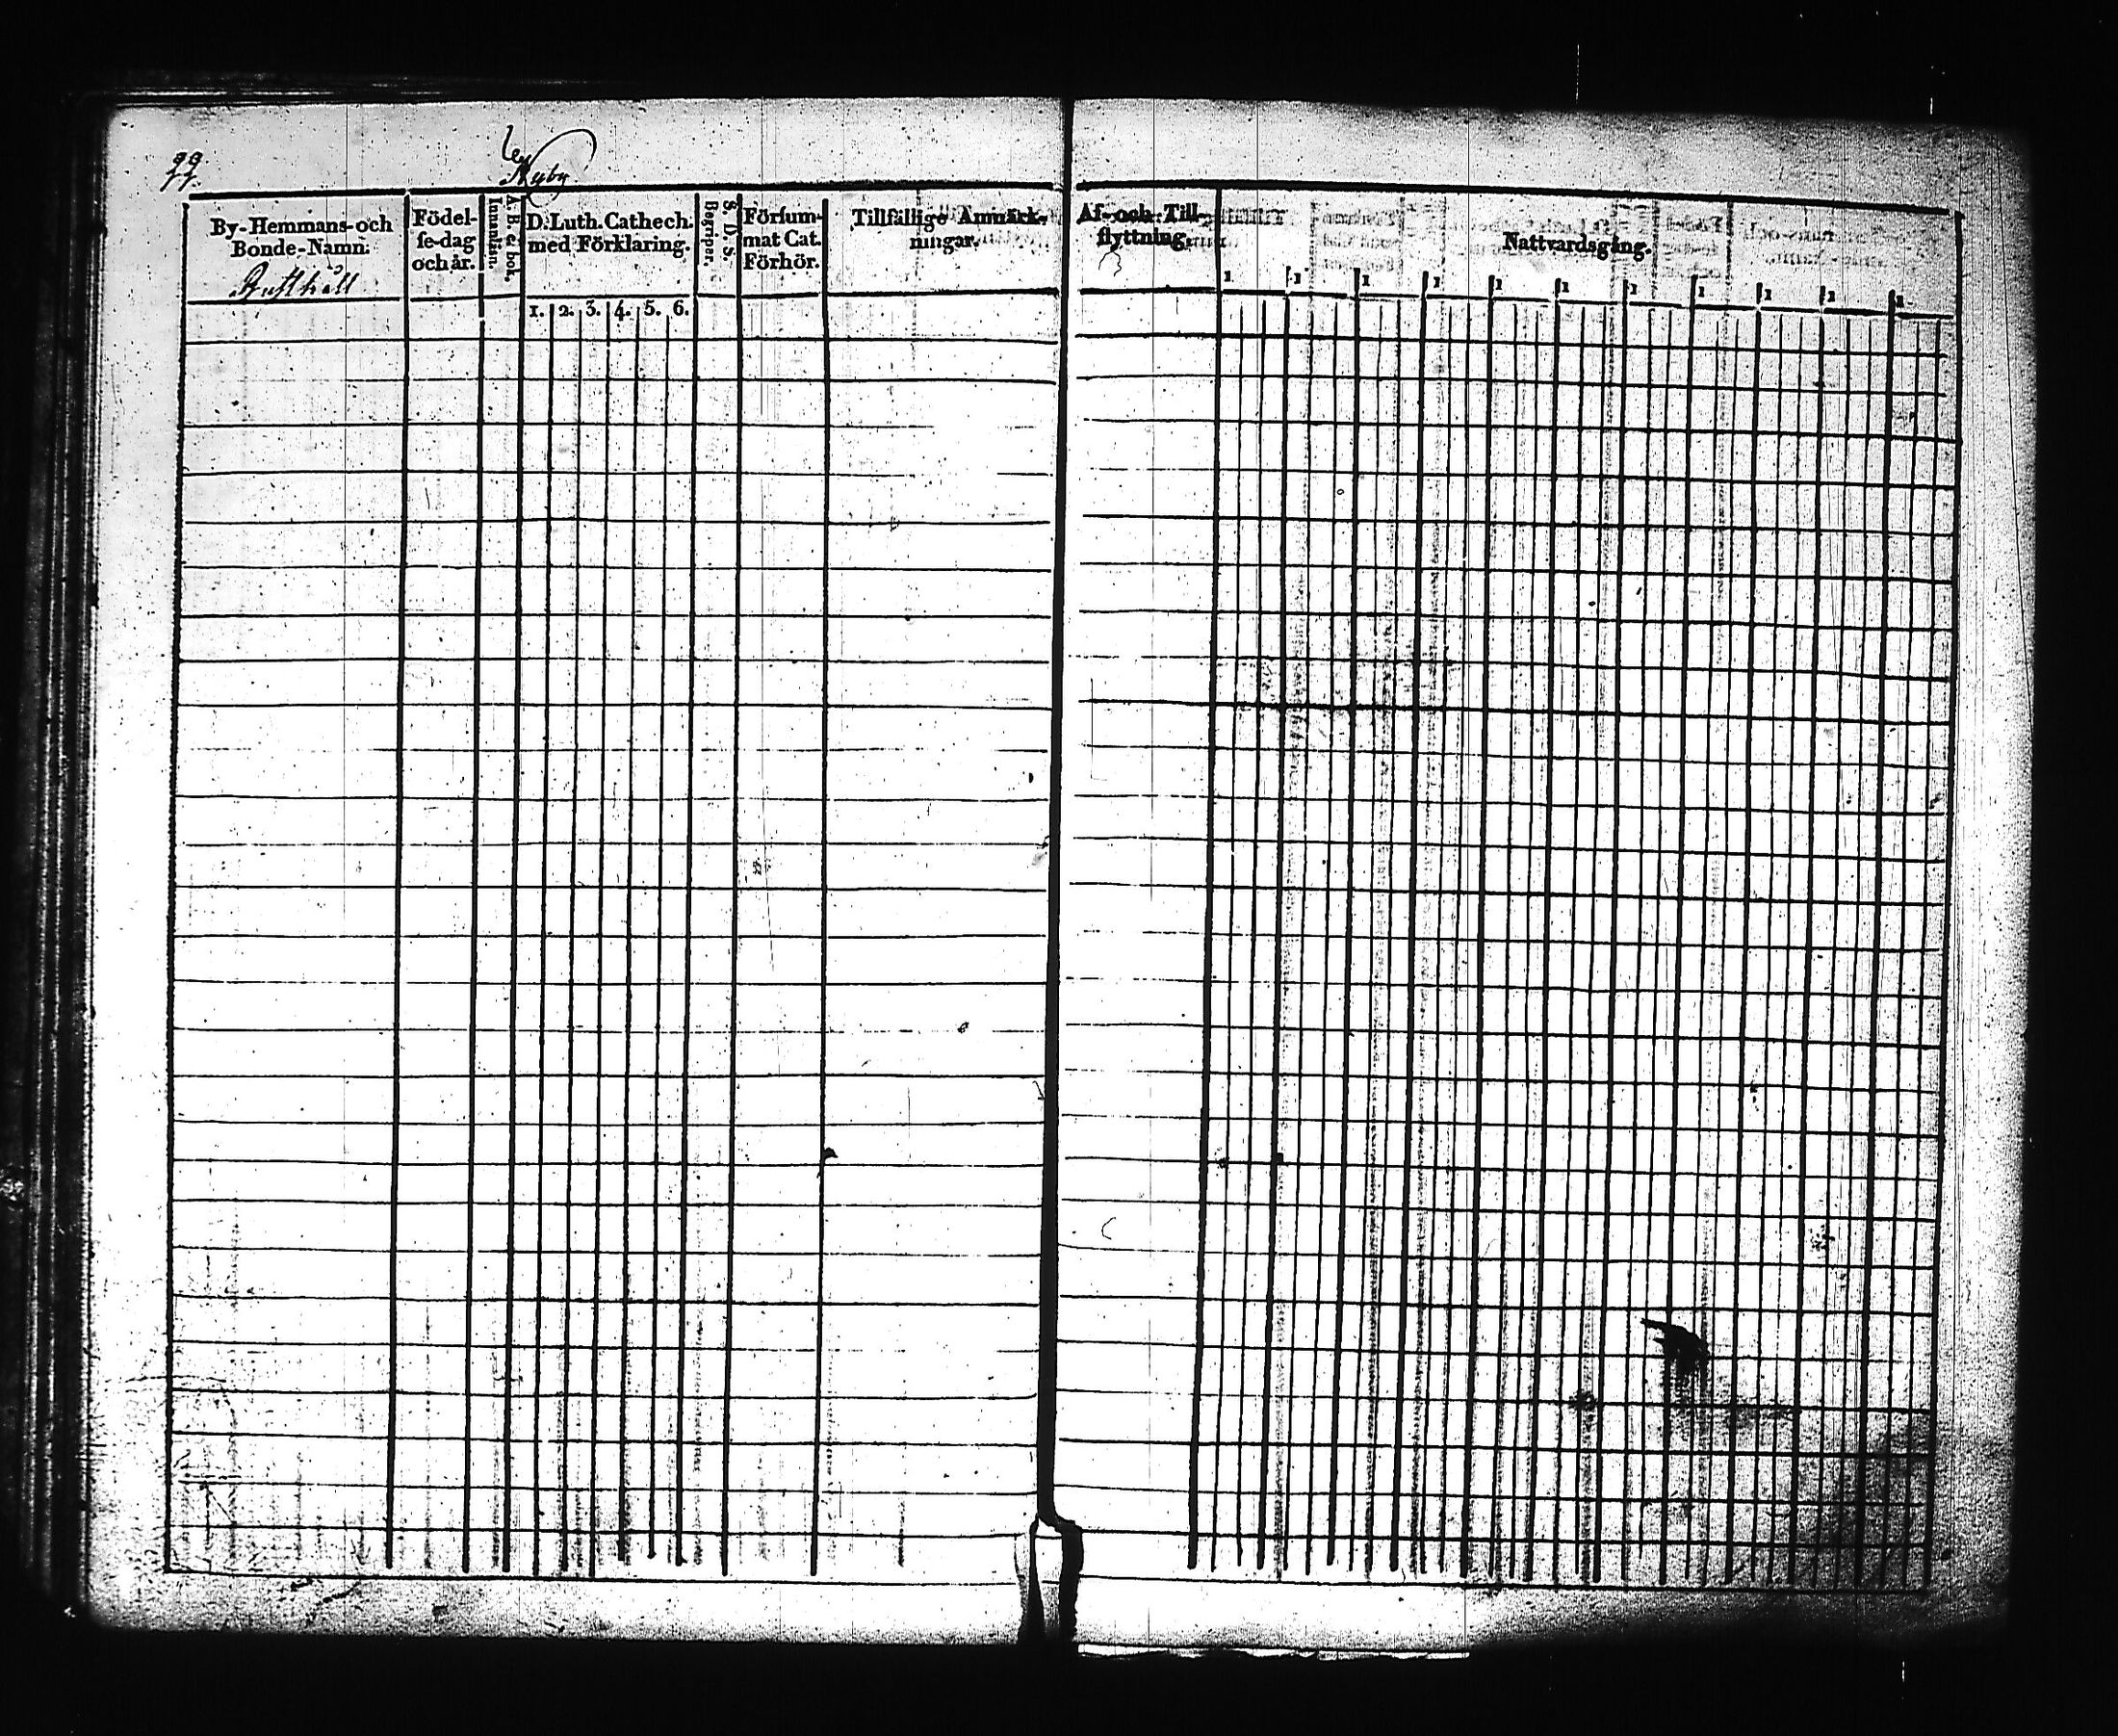 99.
Nyby
By-Hemmans-och
Bonde-Namn.
Rusthåll
Födel-
se-dag
och år.
A. B. el. bok.
Innanläsn.
D. Luth. Cathech.
med Förklaring.
1. 2. 3. 4. 5. 6.
S. D. S.
Begriper.
Försum-
mat Cat.
Förhör.
Tillfällige Anmärk-
ningar.
Af- och Till-
flyttning.
Nattvardsgång.
1 1 1 1 1 1 1 1 1 1 1